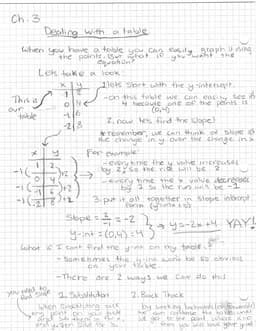 Ch. 3
Dealing with a table
When you have a table you can easily graph it using
the points. But what if you want the
equation?
Lets take a look
x | y
This is
our
table
1 | 2
0 | 4
-1 | 6
-2 | 8
1. lets start with the y-intercept.
-on this table we can easily see it
4 because one of the points is
(0,4)
2. now lets find the slope!
*remember, we can think of slope as
the change in y over the change in x
x | y
1 | 2
0 | 4
-1 | 6
-2 | 8
-1
+2
-1
+2
-1
+2
For example
-every time the y value increases
by 2, so the rise will be 2
-every time the x value decreases
by 1 so the run will be -1
3. put it all together in slope intercept
form (y=mx+b)
slope = 2/-1 = -2
y-int = (0,4) = 4
→ y=-2x+4 YAY!
what is I cant find the y-int on my table?
- Sometimes the y-int wont be so obvious
on your table
-There are 2 ways we can do this
you need to
find slope
1. Substitution
2. Back Track
When substituting pick
any point on your table
and
by working backwards
we can continue the table until
we get to the point where x is
then you will have your y-int